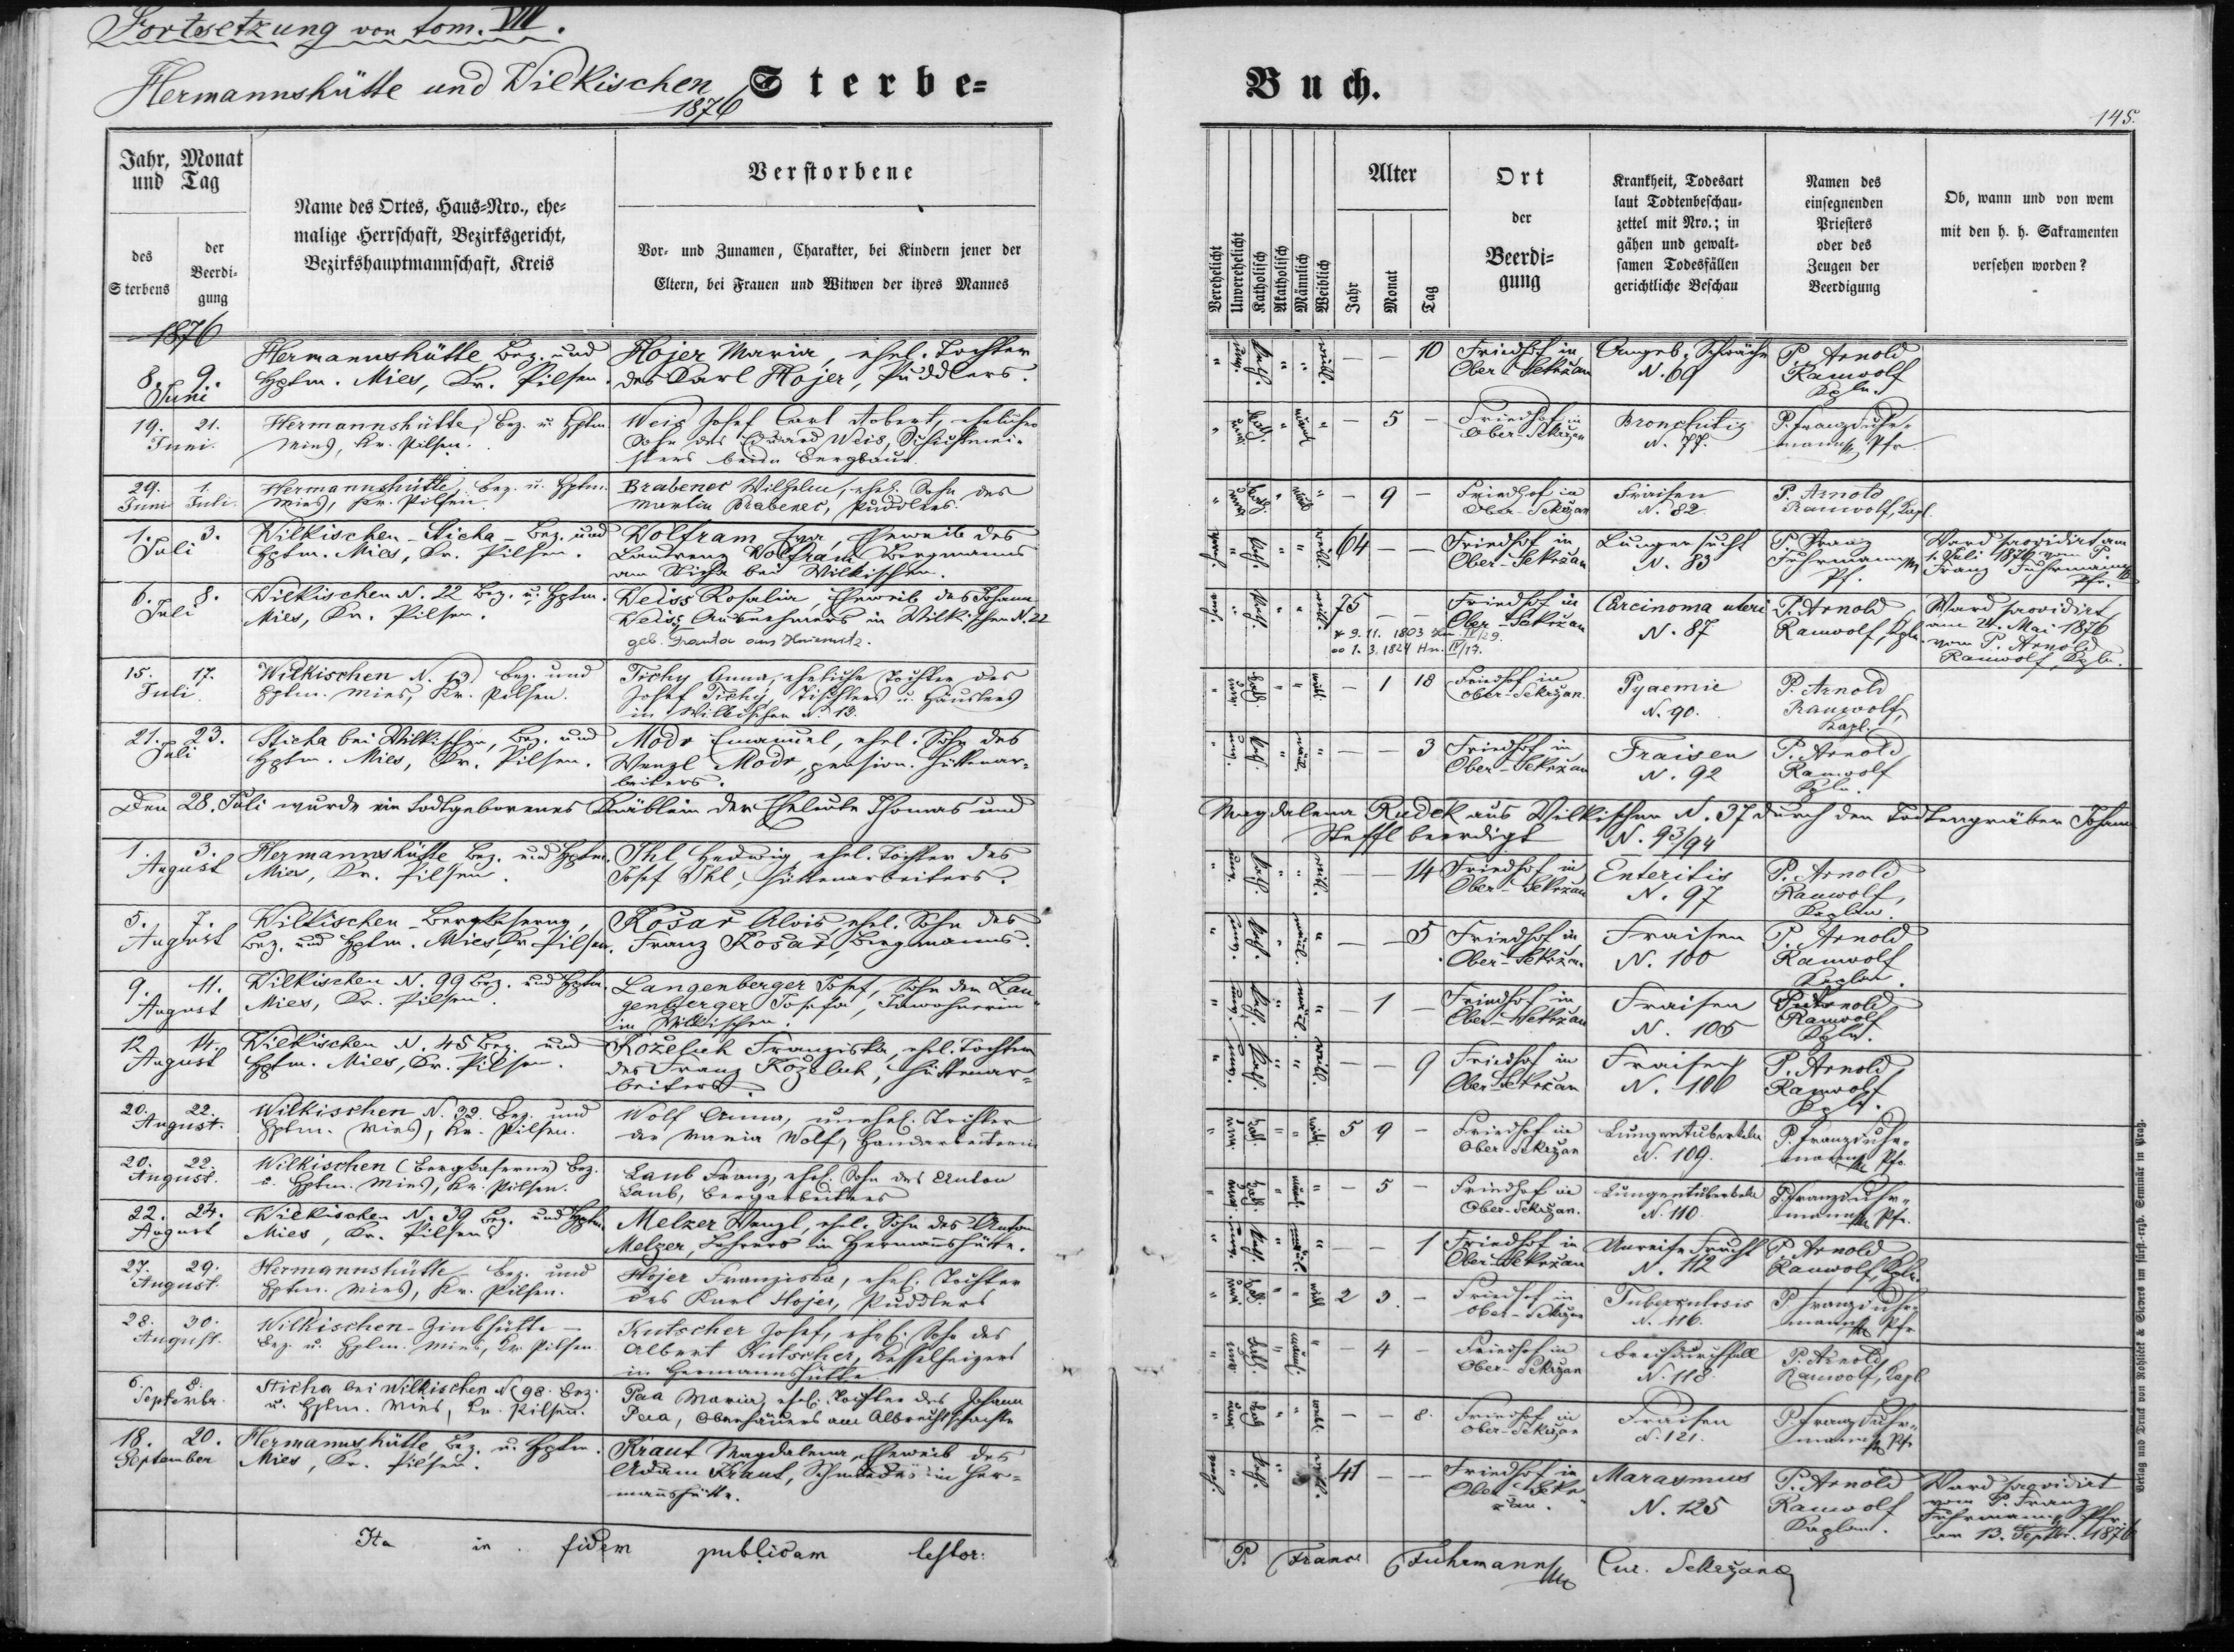 Fortsetzung von tom. VII.
Hermannshütte und Wilkischen
1876
Sterbe=
Buch.
145.
Jahr, Monat
und Tag
des
Sterbens
der
Beerdi-
gung
Name des Ortes, Haus=Nro., ehe=
malige Herrschaft, Bezirksgericht,
Bezirkshauptmannschaft, Kreis
Verstorbene
Vor- und Zunamen, Charakter, bei Kindern jener der
Eltern, bei Frauen und Witwen der ihres Mannes
Verehelicht
Unverehelicht
Katholisch
Akatholisch
Männlich
Weiblich
Alter
Jahr
Monat
Tag
Ort
der
Beerdi=
gung
Krankheit, Todesart
laut Todtenbeschau-
zettel mit Nro.; in
gähen und gewalt-
samen Todesfällen
gerichtliche Beschau
Namen des
einsegnenden
Priesters
oder des
Zeugen der
Beerdigung
Ob, wann und von wem
mit den h. h. Sakramenten
versehen worden?
1876
8. 9.
Juni
Hermannshütte Bez. und
Hptm. Mies, Kr. Pilsen.
Hojer Maria, ehel. Tochter
des Karl Hojer, Puddlers.
" unv. kath. " " weibl. — — 10
Friedhof in
Ober-Sekržan
Angeb. Schwäche
N. 69
P. Arnold
Ranwolf
Kpln.
19. 21.
Juni.
Hermannshütte, Bez. u. Hptm.
Mies, Kr. Pilsen.
Weis Josef Carl Robert, ehelicher
Sohn des Eduard Weis, Schichtmei-
sters beim Bergbau.
— 5 —
Friedhof in
Ober-Sekržan
Bronchitis
N. 77.
P. Franz Fuhr-
mann Pfr.
29. 1.
Juni Juli.
Hermannshütte, Bez. u. Hptm.
Mies, Kr. Pilsen.
Brabenec Wilhelm, ehel. Sohn des
Martin Brabenec, Puddlers.
— 9 —
Friedhof in
Ober-Sekržan
Fraisen
N. 82.
P. Arnold
Ranwolf, Kapl.
1. 3.
Juli
Wilkischen-Sticha- Bez. und
Hptm. Mies, Kr. Pilsen.
Wolfram Eva, Eheweib des
Laurenz Wolfram Bergmanns
am Sticha bei Wilkischen.
64 — —
Friedhof in
Ober-Sekržan
Lungensucht
N. 83
P. Franz
Fuhrmann
Pf.
Ward providirt am
1. Juli 1876 vom P.
Franz Fuhrmann
Pfr.
6. 8.
Juli
Wilkischen N. 22 Bez. u. Hptm.
Mies, Kr. Pilsen.
Weiss Rosalia, Eheweib des Johann
Weiss Ausnehmers in Wilkischen N. 22
75 — —
* 9. 11. 1803
∞ 1. 3. 1824
Friedhof in
Ober-Sekržan
Carcinoma uteri
N. 87
P. Arnold
Ranwolf, Kpln.
Ward providirt
am 24. Mai 1876
vom P. Arnold
Ranwolf, Kpln.
15. 17.
Juli
Wilkischen N. 13 Bez. und
Hptm. Mies, Kr. Pilsen.
Tichy Anna, eheliche Tochter des
Josef Tichy, Tischlers u. Häuslers
in Wilkischen N. 13.
— 1 18
Friedhof in
Ober-Sekržan.
Pyaemie
N. 90.
P. Arnold
Ranwolf,
Kapl.
21. 23.
Juli
Sticha bei Wilkischen, Bez. und
Hptm. Mies, Kr. Pilsen.
Modr Emanuel, ehel. Sohn des
Wenzl Modr, pension. Hüttenar-
beiters.
— — 3
Friedhof in
Ober-Sekržan
Fraisen
N. 92
P. Arnold
Ranwolf
Kpln.
Den 28. Juli wurde ein todtgeborenes Knäblein der Eheleute Thomas und
Magdalena Rudek aus Wilkischen N. 37 durch den Todtengräber Johann
Steffl beerdigt N. 93/94
1. 3.
August
Hermannshütte Bez. und Hptm.
Mies, Kr. Pilsen.
Ihl Hedwig, ehel. Tochter des
Josef Ihl, Hüttenarbeiters.
— — 14
Friedhof in
Ober-Sekržan
Enteritis
N. 97
P. Arnold
Ranwolf,
Kaplan.
5. 7.
August
Wilkischen-Bergkaserne,
Bez. und Hptm. Mies, Kr. Pilsen.
Kosař Alois, ehel. Sohn des
Franz Kosař, Bergmanns.
— — 5
Friedhof in
Ober-Sekržan
Fraisen
N. 100
P. Arnold
Ranwolf
Kaplan.
9. 11.
August
Wilkischen N. 99 Bez. und Hptm.
Mies, Kr. Pilsen.
Langenberger Josef, Sohn der Lan-
genberger Josefa, Inwohnerin
in Wilkischen.
— 1 —
Friedhof in
Ober-Sekržan
Fraisen
N. 105
P. Arnold
Ranwolf
Kpln.
12. 14.
August
Wilkischen N. 45 Bez. und
Hptm. Mies, Kr. Pilsen.
Koželuh Franziska, ehel. Tochter
des Franz Koželuh, Hüttenar-
beiters.
— — 9
Friedhof in
Ober-Sekržan
Fraisen
N. 106
P. Arnold
Ranwolf
Kpln.
20. 22.
August.
Wilkischen N. 32 Bez. und
Hptm. Mies, Kr. Pilsen.
Wolf Anna, unehel. Tochter
der Maria Wolf, Handarbeiterin
5 9 —
Friedhof in
Ober-Sekržan
Lungentuberkeln
N. 109.
P. Franz Fuhr-
mann Pfr.
20. 22.
August.
Wilkischen (Bergkaserne) Bez.
u. Hptm. Mies, Kr. Pilsen.
Laub Franz, ehel. Sohn des Anton
Laub, Bergarbeiters
— 5 —
Friedhof in
Ober-Sekržan.
Lungentuberkeln
N. 110
P. Franz Fuhr-
mann Pfr.
22. 24.
August
Wilkischen N. 39 Bez. und Hptm.
Mies, Kr. Pilsen
Melzer Wenzl, ehel. Sohn des Anton
Melzer, Lehrers in Hermannshütte.
— — 1
Friedhof in
Ober-Sekržan
Unreife Frucht
N. 112
P. Arnold
Ranwolf, Kpln.
27. 29.
August.
Hermannshütte Bez. und
Hptm. Mies, Kr. Pilsen.
Hojer Franziska, ehel. Tochter
des Karl Hojer, Puddlers
2 3 —
Friedhof in
Ober-Sekržan
Tuberculosis
N. 116.
P. Franz Fuhr-
mann Pfr
28. 30.
August.
Wilkischen-Zinkhütte —
Bez. u. Hptm. Mies, Kr. Pilsen
Kutscher Josef, ehel. Sohn des
Albert Kutscher, Kesselheizers
in Hermannshütte
— 4 —
Friedhof in
Ober-Sekržan
Brechdurchfall
N. 118.
P. Arnold
Ranwolf, Kapl
6. 8.
Septembr.
Sticha bei Wilkischen N. 98. Bez.
u. Hptm. Mies, Kr. Pilsen.
Paa Maria, ehel. Tochter des Johann
Paa, Oberhäuers am Albrechtschachte
— — 8.
Friedhof in
Ober-Sekržan
Fraisen
N. 121.
P. Franz Fuhr-
mann Pfr
18. 20.
September
Hermannshütte, Bez. u. Hptm.
Mies, Kr. Pilsen.
Kraut Magdalena, Eheweib des
Adam Kraut, Schmiedes in Her-
mannshütte.
41 — —
Friedhof in
Ober-Sekr-
žan.
Marasmus
N. 125
P. Arnold
Ranwolf
Kaplan.
Ward providirt
vom P. Franz
Fuhrmann Pfr.
am 13. Septbr. 1876
Ita in fidem publicam testor:
P. Franc Fuhrmann Cur. Sekržane
Verlag und Druck von Rohliček & Sievers im fürst.-erzb. Seminär in Prag.